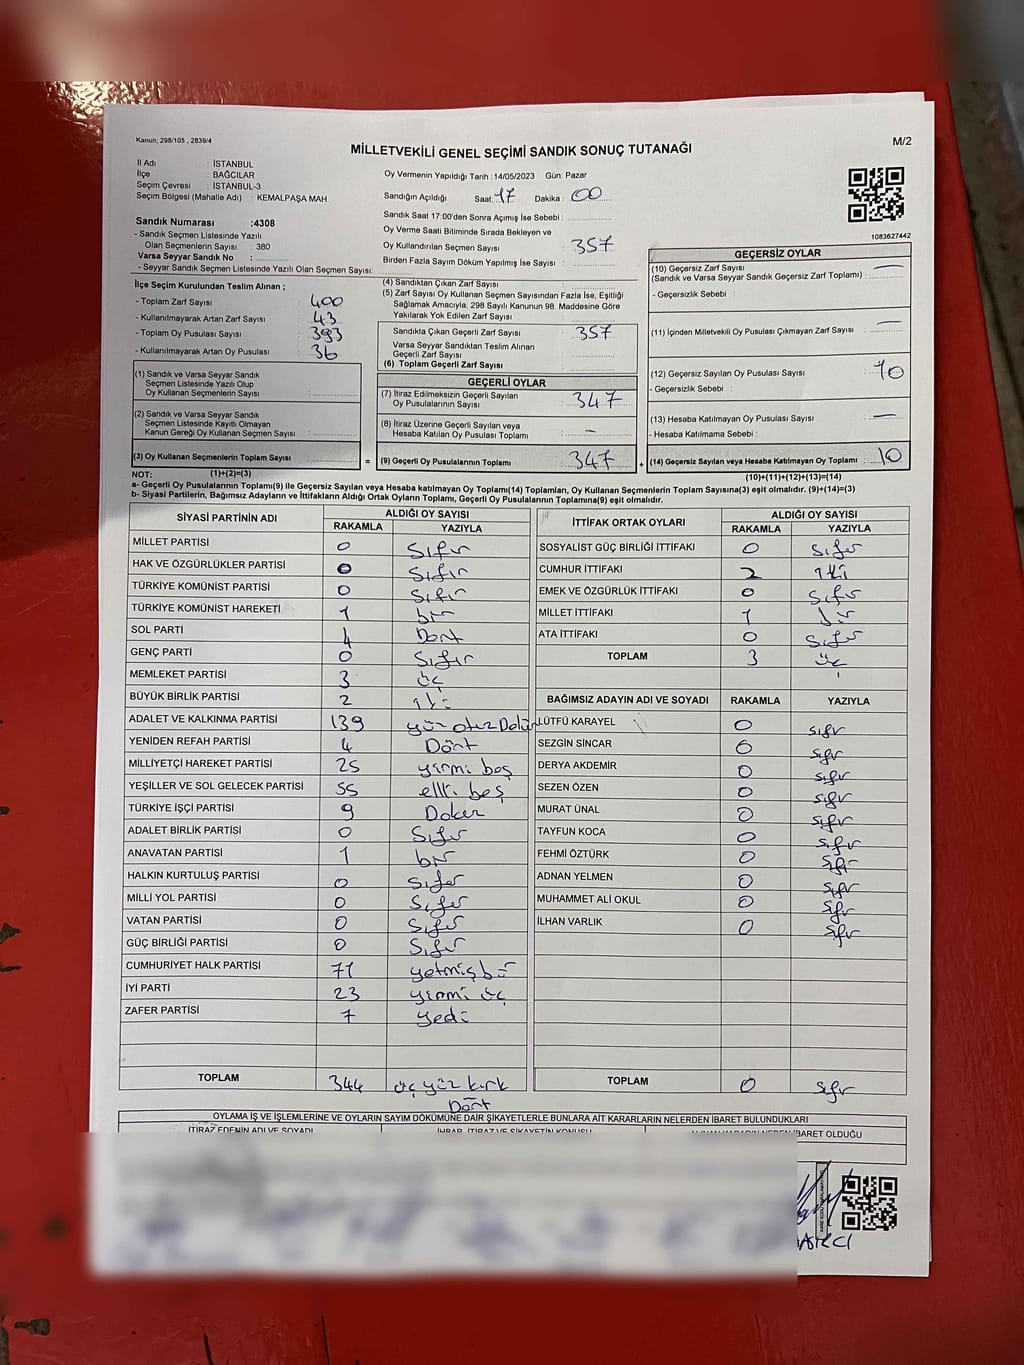 Kanun; 298/105 , 2839/4
M/2
MİLLETVEKİLİ GENEL SEÇİMİ SANDIK SONUÇ TUTANAĞI
İl Adı : İSTANBUL
İlçe : BAĞCILAR
Seçim Çevresi : İSTANBUL-3
Seçim Bölgesi (Mahalle Adı) : KEMALPAŞA MAH.
Sandık Numarası :4308
- Sandık Seçmen Listesinde Yazılı
Olan Seçmenlerin Sayısı : 380
Varsa Seyyar Sandık No :
- Seyyar Sandık Seçmen Listesinde Yazılı Olan Seçmen Sayısı:
Oy Vermenin Yapıldığı Tarih :14/05/2023 Gün: Pazar
Sandığın Açıldığı Saat: 17 Dakika : 00
Sandık Saat 17:00'den Sonra Açımış İse Sebebi :
Oy Verme Saati Bitiminde Sırada Bekleyen ve
Oy Kullandırılan Seçmen Sayısı : 357
Birden Fazla Sayım Döküm Yapılmış İse Sayısı :
1083627442
İlçe Seçim Kurulundan Teslim Alınan ;
- Toplam Zarf Sayısı : 400
- Kullanılmayarak Artan Zarf Sayısı : 43
- Toplam Oy Pusulası : 393
- Kullanılmayarak Artan Oy Pusulası : 36
(1) Sandık ve Varsa Seyyar Sandık
Seçmen Listesinde Yazılı Olup
Oy Kullanan Seçmenlerin Sayısı :
(2) Sandık ve Varsa Seyyar Sandık
Seçmen Listesinde Kayıtlı Olmayan
Kanun Gereği Oy Kullanan Seçmen Sayısı :
(3) Oy Kullanan Seçmenlerin Toplam Sayısı :
(4) Sandıktan Çıkan Zarf Sayısı :
(5) Zarf Sayısı Oy Kullanan Seçmen Sayısından Fazla İse, Eşitliği
Sağlamak Amacıyla, 298 Sayılı Kanunun 98. Maddesine Göre
Yakılarak Yok Edilen Zarf Sayısı :
Sandıkta Çıkan Geçerli Zarf Sayısı : 357
Varsa Seyyar Sandıktan Teslim Alınan
Geçerli Zarf Sayısı :
(6) Toplam Geçerli Zarf Sayısı :
GEÇERLİ OYLAR
(7) İtiraz Edilmeksizin Geçerli Sayılan
Oy Pusulalarının Sayısı : 347
(8) İtiraz Üzerine Geçerli Sayılan veya
Hesaba Katılan Oy Pusulası Toplamı : -
= (9) Geçerli Oy Pusulalarının Toplamı : 347
GEÇERSİZ OYLAR
(10) Geçersiz Zarf Sayısı : -
(Sandık ve Varsa Seyyar Sandık Geçersiz Zarf Toplamı)
- Geçersizlik Sebebi :
(11) İçinden Milletvekili Oy Pusulası Çıkmayan Zarf Sayısı : -
(12) Geçersiz Sayılan Oy Pusulası Sayısı : 10
- Geçersizlik Sebebi :
(13) Hesaba Katılmayan Oy Pusulası Sayısı : -
- Hesaba Katılmama Sebebi :
+ (14) Geçersiz Sayılan veya Hesaba Katılmayan Oy Toplamı : 10
NOT: (1)+(2)=(3)
(10)+(11)+(12)+(13)=(14)
a- Geçerli Oy Pusulalarının Toplamı(9) ile Geçersiz Sayılan veya Hesaba katılmayan Oy Toplamı(14) Toplamları, Oy Kullanan Seçmenlerin Toplam Sayısına(3) eşit olmalıdır. (9)+(14)=(3)
b- Siyasi Partilerin, Bağımsız Adayların ve İttifakların Aldığı Ortak Oyların Toplamı, Geçerli Oy Pusulalarının Toplamına(9) eşit olmalıdır.
SİYASİ PARTİNİN ADI ALDIĞI OY SAYISI
RAKAMLA YAZIYLA
MİLLET PARTİSİ 0 Sıfır
HAK VE ÖZGÜRLÜKLER PARTİSİ 0 Sıfır
TÜRKİYE KOMÜNİST PARTİSİ 0 Sıfır
TÜRKİYE KOMÜNİST HAREKETİ 1 bir
SOL PARTİ 4 Dört
GENÇ PARTİ 0 Sıfır
MEMLEKET PARTİSİ 3 üç
BÜYÜK BİRLİK PARTİSİ 2 iki
ADALET VE KALKINMA PARTİSİ 139 yüz otuz
YENİDEN REFAH PARTİSİ 4 Dört
MİLLİYETÇİ HAREKET PARTİSİ 25 yirmi beş
YEŞİLLER VE SOL GELECEK PARTİSİ 55 elli beş
TÜRKİYE İŞÇİ PARTİSİ 9 Dokuz
ADALET BİRLİK PARTİSİ 0 Sıfır
ANAVATAN PARTİSİ 1 bir
HALKIN KURTULUŞ PARTİSİ 0 Sıfır
MİLLİ YOL PARTİSİ 0 Sıfır
VATAN PARTİSİ 0 Sıfır
GÜÇ BİRLİĞİ PARTİSİ 0 Sıfır
CUMHURİYET HALK PARTİSİ 71 yetmiş bir
İYİ PARTİ 23 yirmi üç
ZAFER PARTİSİ 7 yedi
TOPLAM 344 üç yüz kırk
Dört
İTTİFAK ORTAK OYLARI ALDIĞI OY SAYISI
RAKAMLA YAZIYLA
SOSYALİST GÜÇ BİRLİĞİ İTTİFAKI 0 Sıfır
CUMHUR İTTİFAKI 2 iki
EMEK VE ÖZGÜRLÜK İTTİFAKI 0 Sıfır
MİLLET İTTİFAKI 1 bir
ATA İTTİFAKI 0 Sıfır
TOPLAM 3 üç
BAĞIMSIZ ADAYIN ADI VE SOYADI RAKAMLA YAZIYLA
LÜTFÜ KARAYEL 0 sıfır
SEZGİN SİNCAR 0 sıfır
DERYA AKDEMİR 0 sıfır
SEZEN ÖZEN 0 sıfır
MURAT ÜNAL 0 sıfır
TAYFUN KOCA 0 sıfır
FEHMİ ÖZTÜRK 0 sıfır
ADNAN YELMEN 0 sıfır
MUHAMMET ALİ OKUL 0 sıfır
İLHAN VARLIK 0 sıfır
TOPLAM 0 sıfır
OYLAMA İŞ VE İŞLEMLERİNE VE OYLARIN SAYIM DÖKÜMÜNE DAİR ŞİKAYETLERLE BUNLARA AİT KARARLARIN NELERDEN İBARET BULUNDUKLARI
İTİRAZ EDENİN ADI VE SOYADI İHBAR, İTİRAZ VE ŞİKAYETİN KONUSU İBARET OLDUĞU